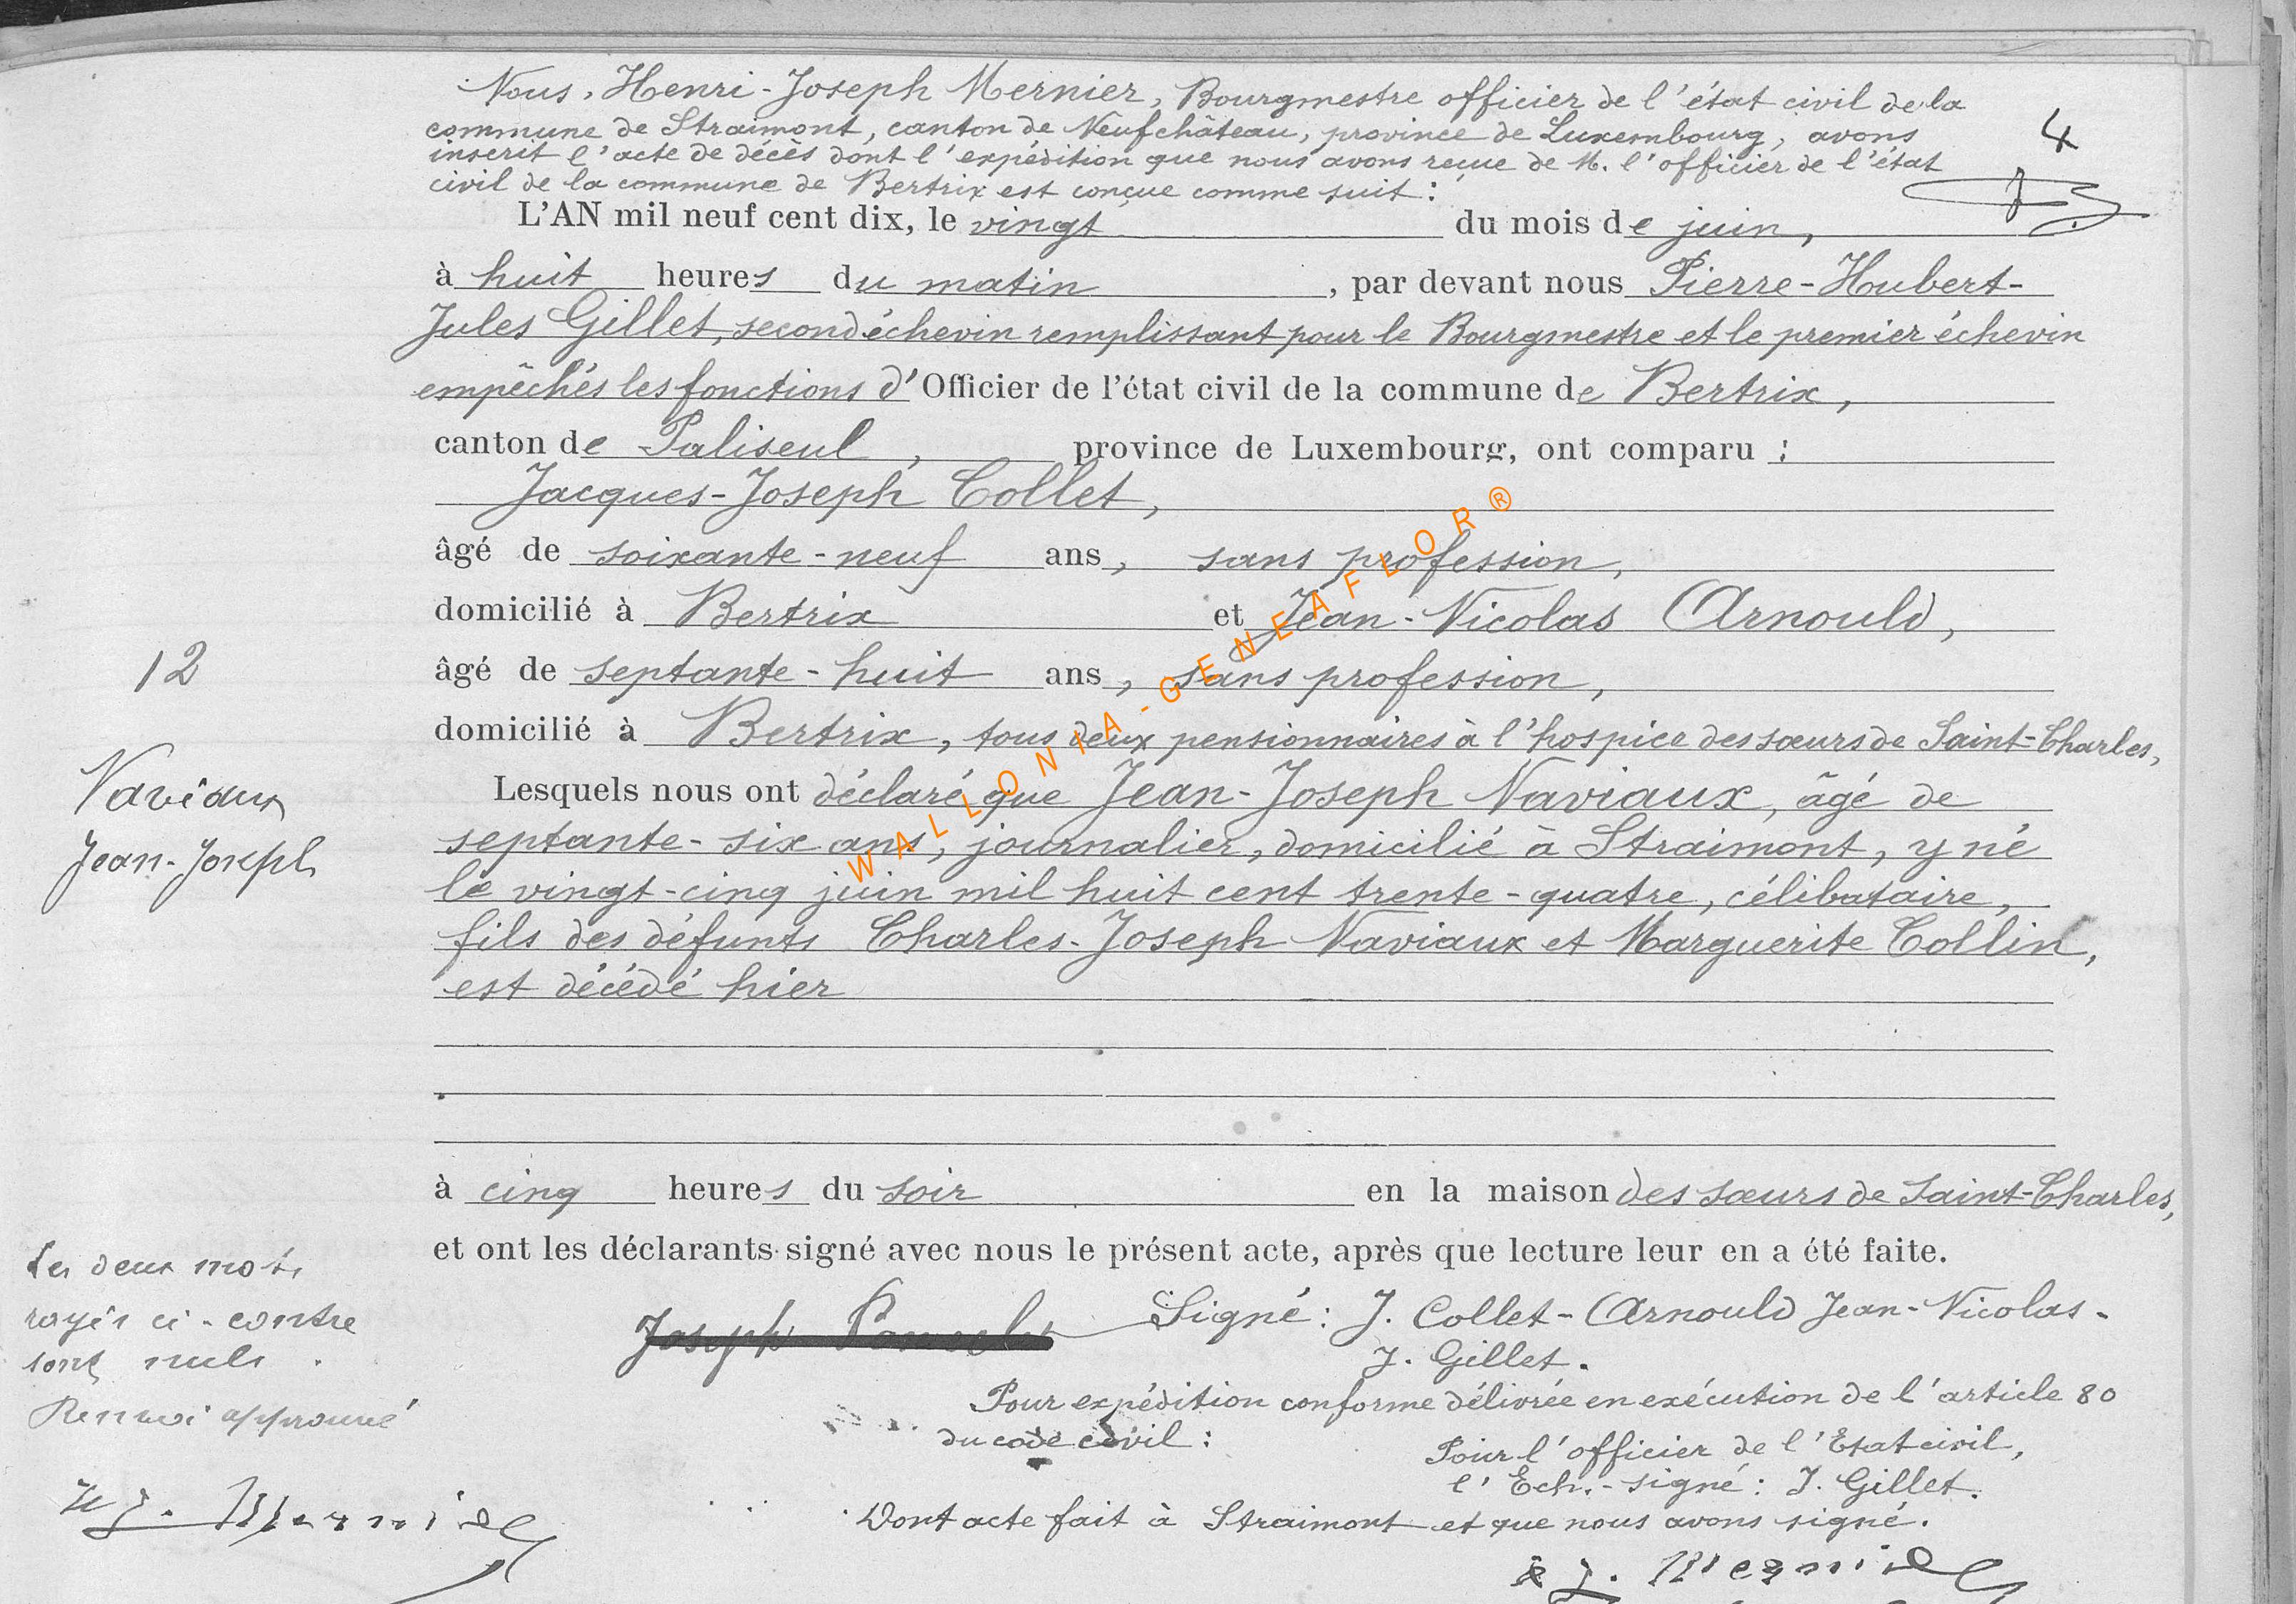 Nous, Henri-Joseph Mernier, Bourgmestre officier de l'état civil de la
commune de Straimont, canton de Neufchâteau, province de Luxembourg, avons
inscrit l'acte de décès dont l'expédition que nous avons reçue de M. l'officier de l'état
civil de la commune de Bertrix est conçue comme suit :
4
L'AN mil neuf cent dix, le vingt du mois de juin,
à huit heures du matin, par devant nous Pierre-Hubert-
Jules Gillet, second échevin remplissant pour le Bourgmestre et le premier échevin
empêchés les fonctions d'Officier de l'état civil de la commune de Bertrix,
canton de Paliseul, province de Luxembourg, ont comparu :
Jacques-Joseph Collet,
âgé de soixante-neuf ans, sans profession,
domicilié à Bertrix et Jean-Nicolas Arnould,
âgé de septante-huit ans, sans profession,
domicilié à Bertrix, tous deux pensionnaires à l'hospice des sœurs de Saint-Charles,
12
Naviaux
Jean-Joseph
Lesquels nous ont déclaré que Jean-Joseph Naviaux, âgé de
septante-six ans, journalier, domicilié à Straimont, y né
le vingt-cinq juin mil huit cent trente-quatre, célibataire,
fils des défunts Charles-Joseph Naviaux et Marguerite Collin,
est décédé hier
à cinq heures du soir en la maison des sœurs de Saint-Charles,
et ont les déclarants signé avec nous le présent acte, après que lecture leur en a été faite.
Les deux mots
rayés ci-contre
sont nuls.
Renvoi approuvé
H J. Mernier
Joseph
Signé : J. Collet - Arnould Jean-Nicolas -
J. Gillet.
Pour expédition conforme délivrée en exécution de l'article 80
du code civil :
Pour l'officier de l'Etat civil,
l'Ech. - signé : J. Gillet.
Dont acte fait à Straimont et que nous avons signé.
H J. Mernier
WALLONIA-GENEAFLOR®